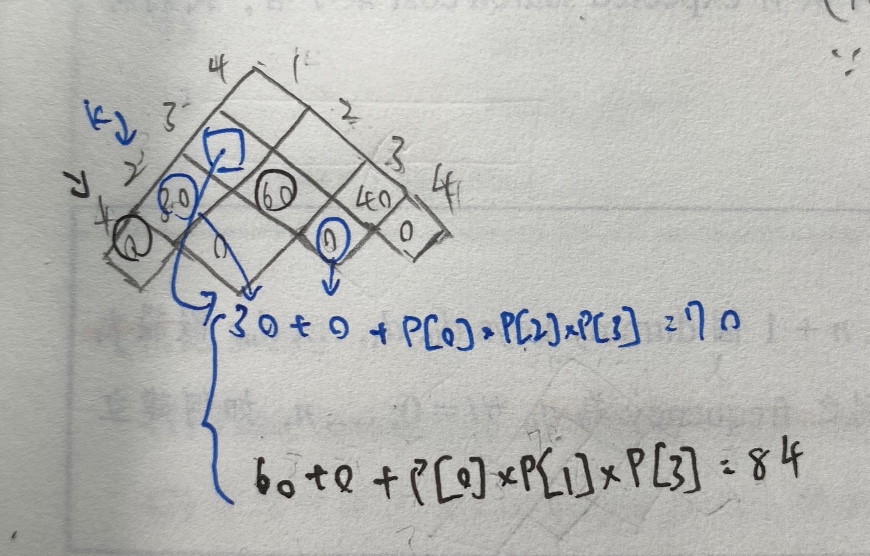 4 1
3 2
K
2 3
1 4
30 60 40
0 0 0 0
30 + 0 + P[0] × P[2] × P[3] = 70
60 + 0 + P[0] × P[1] × P[3] = 84